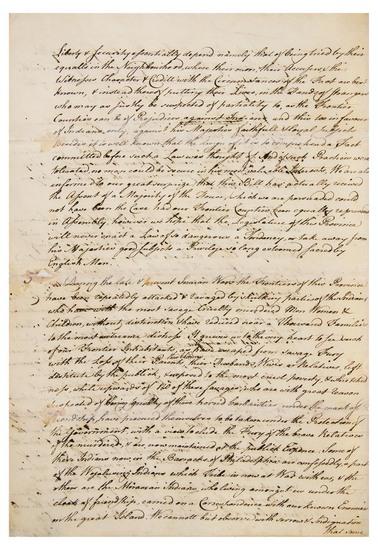 Liberty & Security essentially depend namely that of being tried by their
equalls in the Neighbourhood where their own, their Accusers, & the
Witnesses Character & Credit with the Circumstances of the Fact are best
known, & instead thereof putting their Lives in the Hands of Strangers
who may as justly be suspected of partiality to, as the Frontier
Counties can be of Prejudices against Indians and this too in favour
of Indians only, against his Majesties faithfull & loyal Subjects
Besides it is well known that the
committed before such a Law was thought of. And if such Practices were
tolerated, no man could be secure in his most Interests. We are also
informed to our great surprize, that this Bill has actually received
the Assent of a Majority of the House, which we are persuaded could
not have been the Case, had our Frontier Counties been equally represented
in Assembly however we hope that the Legislature of this Province
will never enact a Law of so dangerous a Tendency, or take away from
his Majesties good subjects a Privilege so long esteemed sacred by
English Men.
3 During the late & present Indian War, the Frontiers of this Province
have been repeatedly attacked & ravaged by Skulking parties of the Indians
who have with the most savage Cruelty murdered Men Women &
Children, without distinction & have reduced near a Thousand Families
to the most extreme distress. It grieves us to the very heart to see such
of our Frontier Inhabitants, as have escaped from savage Fury
with the loss of their Parents, their Children, Wives or Relatives, left
destitute by the publick, & exposed to the most cruel poverty & wretched
ness, while upwards of 120 of these Savages, who are with great reason
suspected of being guilty of these horrid barbarities under the mask of
friendship, have procured themselves to be taken under the Protection of
the Government, with a view to elude the Fury of the brave Relatives
of the murdered, & are now maintained at the publick Expence. Some of
these Indians now in the Barracks of Philadelphia are confessedly a part
of the Wyalusing Indians which Tribe is now at War with us, & the
others are the Moravian Indians, who living amongst us under the
cloak of friendship, carried on a Correspondence with our known Enemies
on the great Island. We cannot but observe with sorrow & Indignation
that some